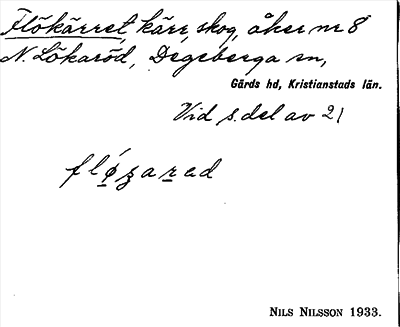 Flökärret, kärr, skog, åker nr 8
N. Lökaröd, Degeberga sn,
Gärds hd, Kristianstads län.
Vid s. del av 21
NILS NILSSON 1933.